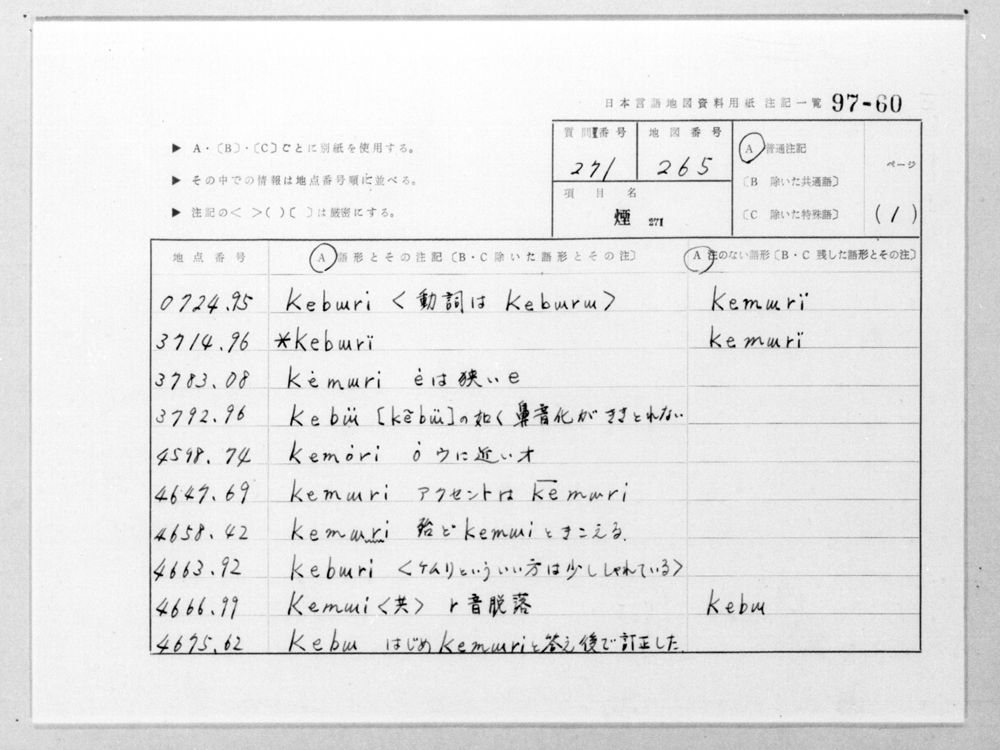 日本言語地図資料用紙 注記一覧 97-60
▶ A・〔B〕・〔C〕ごとに別紙を使用する。
▶ その中での情報は地点番号順に並べる。
▶ 注記の< >( )〔 〕は厳密にする。
質問番号 地図番号
271 265
項目名
煙 271
A 普通注記
〔B 除いた共通語〕
〔C 除いた特殊語〕
ページ
(1)
地点番号 A 語形とその注記〔B・C除いた語形とその注〕 A 注のない語形〔B・C 残した語形とその注〕
0724.95 kebɯri <動詞は keburɯ> kemɯrï
3714.96 *kebɯrï kemɯrï
3783.08 kėmɯri ėは狭いe
3792.96 kebɯ̈ [kẽbɯ̈]の如く鼻音化がききとれない
4598.74 kemȯri ȯ ウに近いオ
4647.69 kemɯri アクセントは k̅e̅mɯri
4658.42 kemɯri 殆どkemɯiときこえる.
4663.92 kebɯri <ケムリといういい方は少ししゃれている>
4666.99 kemɯi<共> r音脱落 kebɯ
4675.62 kebɯ はじめkemɯriと答え後で訂正した.